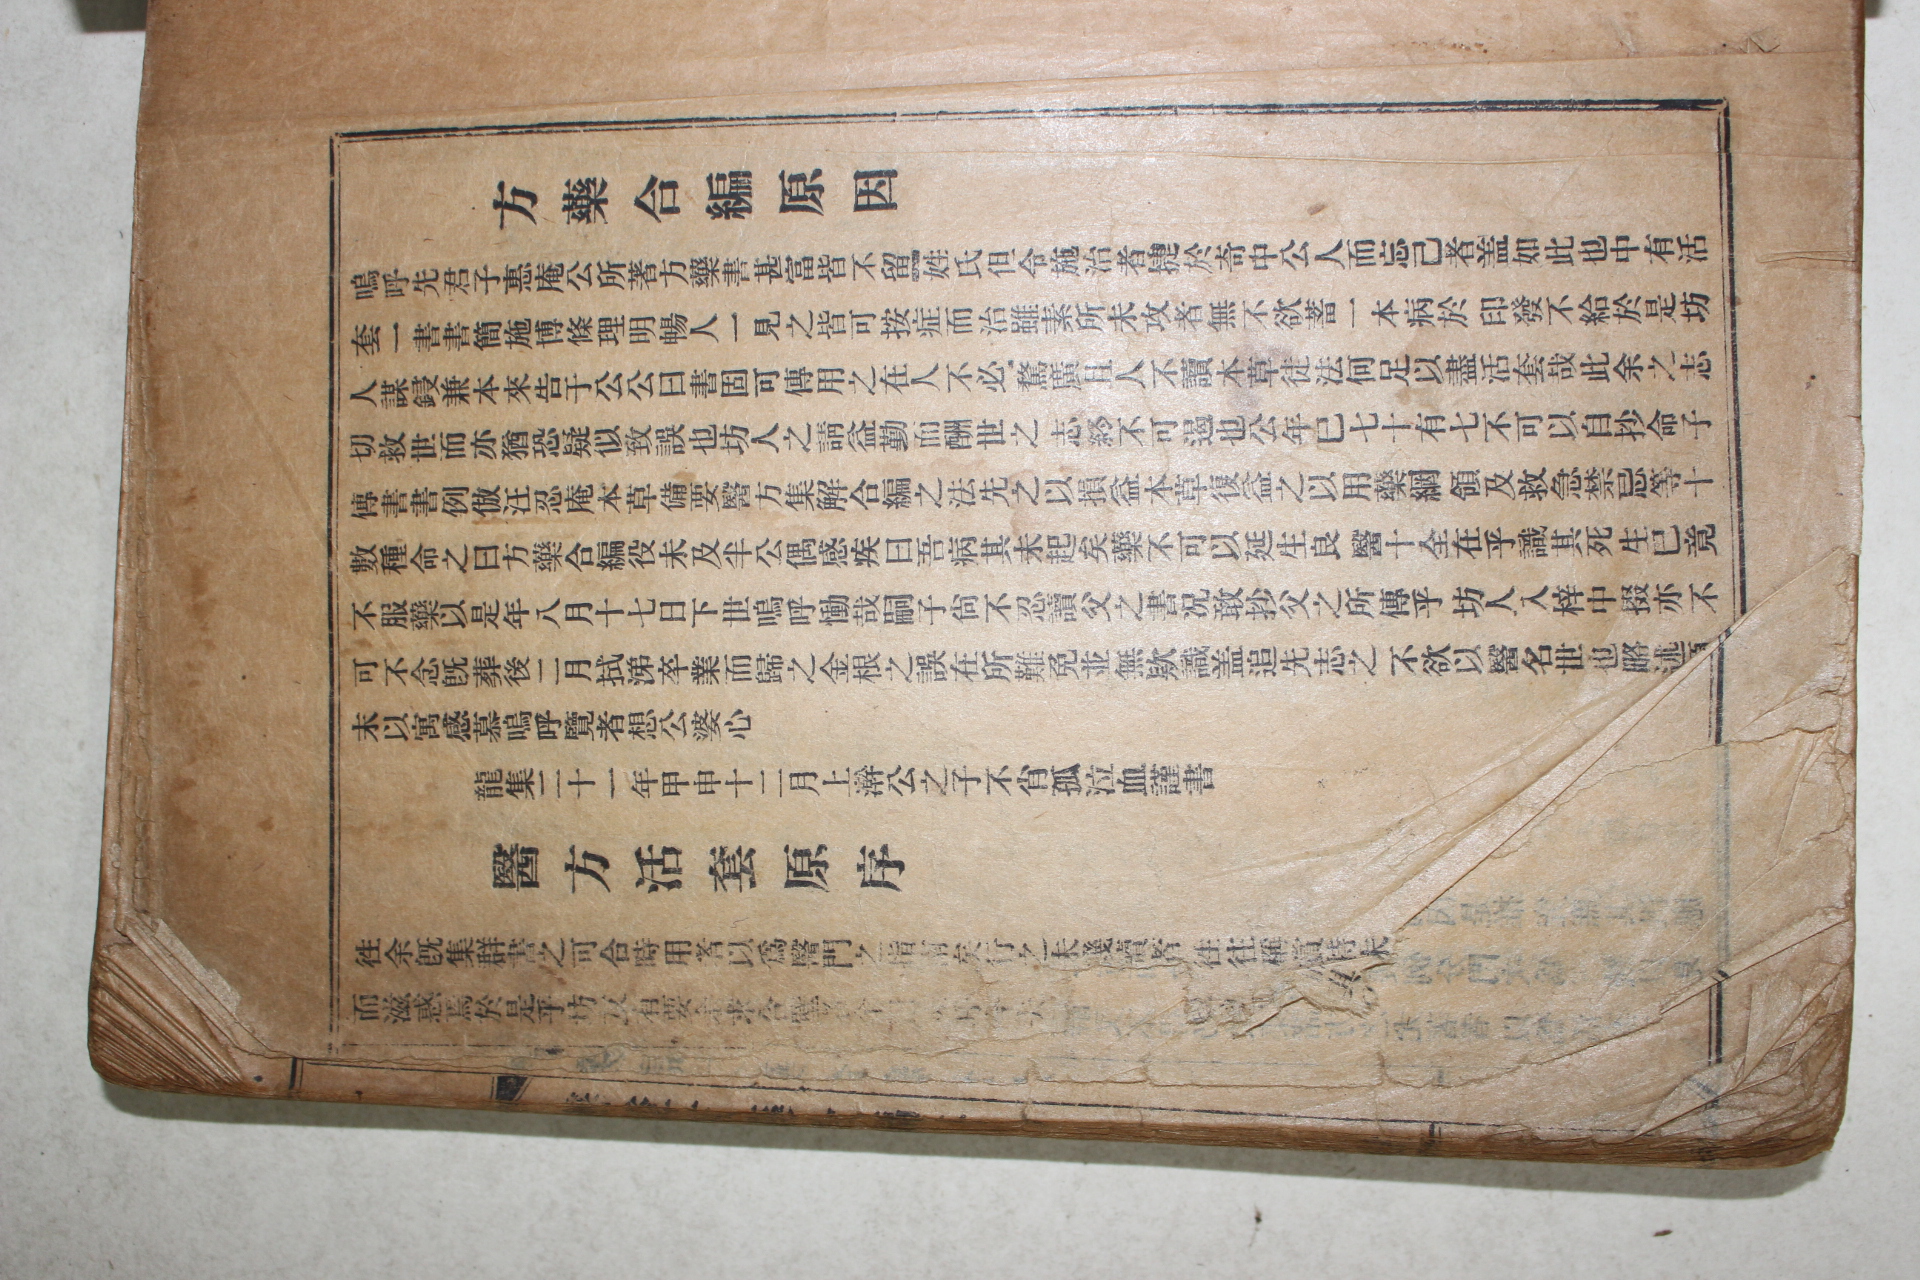 方藥合編原因
嗚呼先君子惠庵公所著方藥書甚富皆不留姓氏但令施治者捷於奇中公人而忘己者盖如此也中有活
套一書書簡施博條理明暢人一見之皆可按症而治雖素所未攻者無不欲蓄一本病於印發不給於是坊
人謀鋟兼本來告于公公曰書固可傳用之在人不必騖廣且人不讀本草徒法何足以盡活套哉此余之志
切救世而亦猶恐疑似致誤也坊人之請益勤而酬世之志終不可遏也公年已七十有七不可以自抄命子
傳書書例倣汪忍庵本草備要醫方集解合編之法先之以損益本草復益之以用藥綱領及救急禁忌等十
數種命之曰方藥合編役未及半公偶感疾曰吾病其未起矣藥不可以延生良醫十全在乎識其死生已竟
不服藥以是年八月十七日下世嗚呼慟哉嗣子尙不忍讀父之書況敢抄父之所傳乎坊人入梓中掇亦不
可不念旣葬後二月拭涕卒業而歸之金根之誤在所難免並無欵識盖追先志之不欲以醫名世也略述
末以寓感慕嗚呼覽者想公婆心
龍集二十一年甲申十二月上澣公之子不肖孤泣血謹書
醫方活套原序
徃余旣集群書之可合時用者以爲醫門之指南矣行之未幾賣者徃徃
而滋惑焉於是乎坊